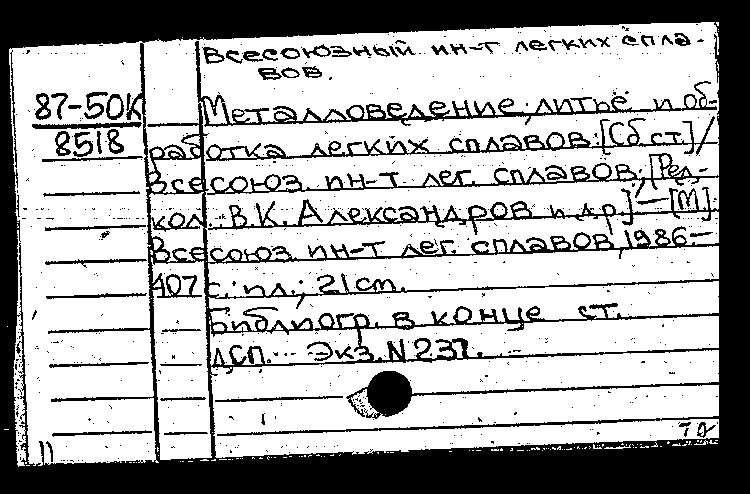 Всесоюзный ин-т легких спла-
вов.
87-50К
8518
Металловедение, литье и об-
работка легких сплавов: [Сб ст.] /
Всесоюз. ин-т лег. сплавов; [Ред-
кол.: В.К. Александров и др.] — [М]:
Всесоюз. ин-т лег. сплавов, 1986.—
407 с.: ил.; 21 cm.
Библиогр. в конце ст.
ДСП. Экз. N 237.